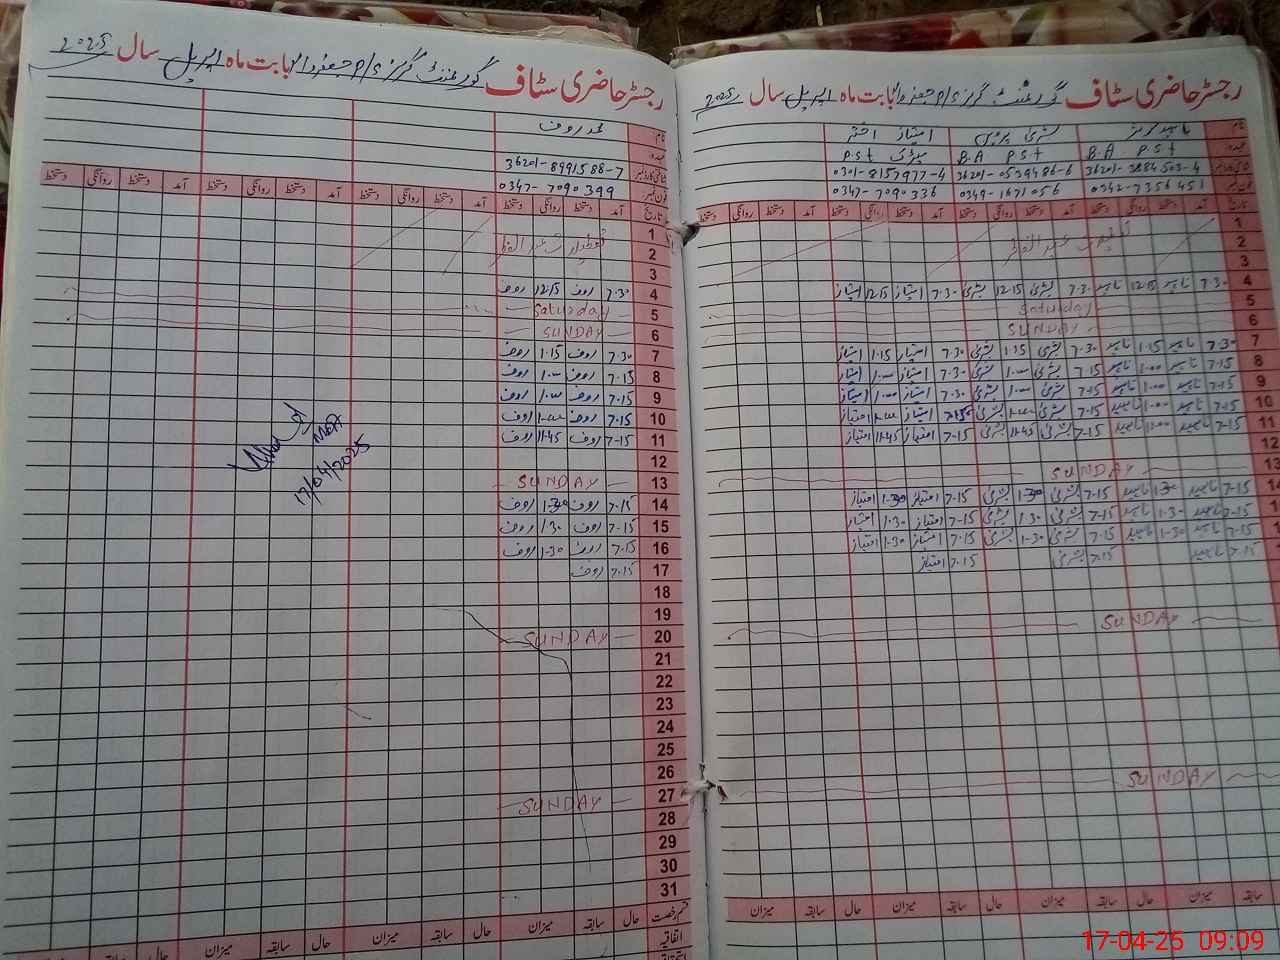 رجسٹر حاضری سٹاف گورنمنٹ گرلز P/S بابت ماہ اپریل سال 2025
نام
عہدہ B.A P.S.T B.A P.S.T P.S.T
شناختی کارڈ نمبر 36201-0539486-6 0301-8157977-4
فون نمبر 0342-7356451 0349-1671056 0347-7090336
تاریخ آمد دستخط روانگی دستخط آمد دستخط روانگی دستخط آمد دستخط روانگی دستخط آمد دستخط روانگی دستخط
1
2
3
4 7.30 ناہید 12.15 ناہید 7.30 بشریٰ 12.15 بشریٰ 7.30 امتیاز 12.15 امتیاز
5 Saturday
6 SUNDAY
7 7.30 ناہید 1.15 ناہید 7.30 بشریٰ 1.15 بشریٰ 7.30 امتیاز 1.15 امتیاز
8 7.15 ناہید 1.00 ناہید 7.15 بشریٰ 1.00 بشریٰ 7.30 امتیاز 1.00 امتیاز
9 7.15 ناہید 1.00 ناہید 7.15 بشریٰ 1.00 بشریٰ 7.30 امتیاز 1.00 امتیاز
10 7.15 ناہید 1.00 ناہید 7.15 بشریٰ 1.00 بشریٰ 7.15 امتیاز 1.00 امتیاز
11 7.15 ناہید ناہید 7.15 بشریٰ 11.45 بشریٰ 7.15 امتیاز 11.45 امتیاز
12
13 SUNDAY
14 7.15 ناہید 1.30 ناہید 7.15 بشریٰ 1.30 بشریٰ 7.15 امتیاز 1.30 امتیاز
7.15 ناہید 1.30 ناہید 7.15 بشریٰ 1.30 بشریٰ 7.15 امتیاز 1.30 امتیاز
7.15 ناہید 1.30 ناہید 7.15 بشریٰ 1.30 بشریٰ 7.15 امتیاز 1.30 امتیاز
7.15 ناہید 7.15 بشریٰ 7.15 امتیاز
SUNDAY
SUNDAY
سابقہ میزان حال سابقہ میزان حال سابقہ میزان حال سابقہ میزان
رجسٹر حاضری سٹاف گورنمنٹ گرلز P/S بابت ماہ اپریل سال 2025
نام محمد روف
عہدہ
شناختی کارڈ نمبر 36201-8991588-7
فون نمبر 0347-7090399
تاریخ آمد دستخط روانگی دستخط آمد دستخط روانگی دستخط آمد دستخط روانگی دستخط آمد دستخط روانگی دستخط
1
2
3
4 7.30 روف 12.15 روف
5 Saturday
6 SUNDAY
7 7.30 روف 1.15 روف
8 7.15 روف 1.00 روف
9 7.15 روف 1.00 روف
10 7.15 روف 1.00 روف
11 7.15 روف 11.45 روف
12
13 SUNDAY
14 7.15 روف 1.30 روف
15 7.15 روف 1.30 روف
16 7.15 روف 1.30 روف
17 7.15 روف
18
19
20 SUNDAY
21
22
23
24
25
26
27 SUNDAY
28
29
30
31
قسم رخصت حال سابقہ میزان حال سابقہ میزان حال سابقہ میزان حال سابقہ میزان
اتفاقیہ
MEA
17/04/2025
17-04-25 09:09